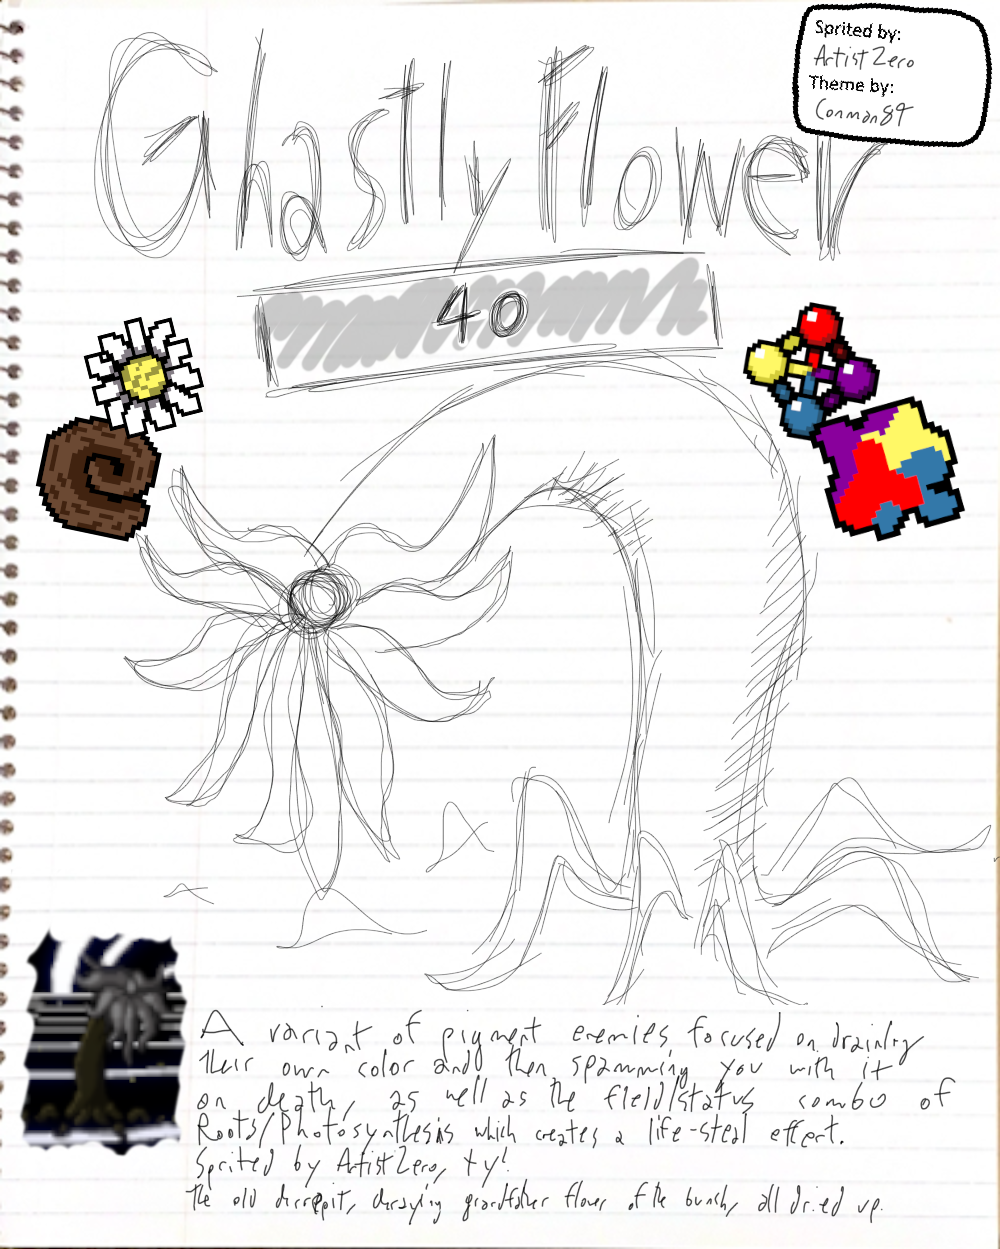 Sprited by:
ArtistZero
Theme by:
Conman89
Ghastly Flower
40
A variant of pigment enemies focused on draining
their own color and then spamming you with it
on death, as well as the field/status combo of
Roots/Photosynthesis which creates a life-steal effect.
Sprited by ArtistZero, ty!
The old decrepit, decaying grandfather flower of the bunch, all dried up.